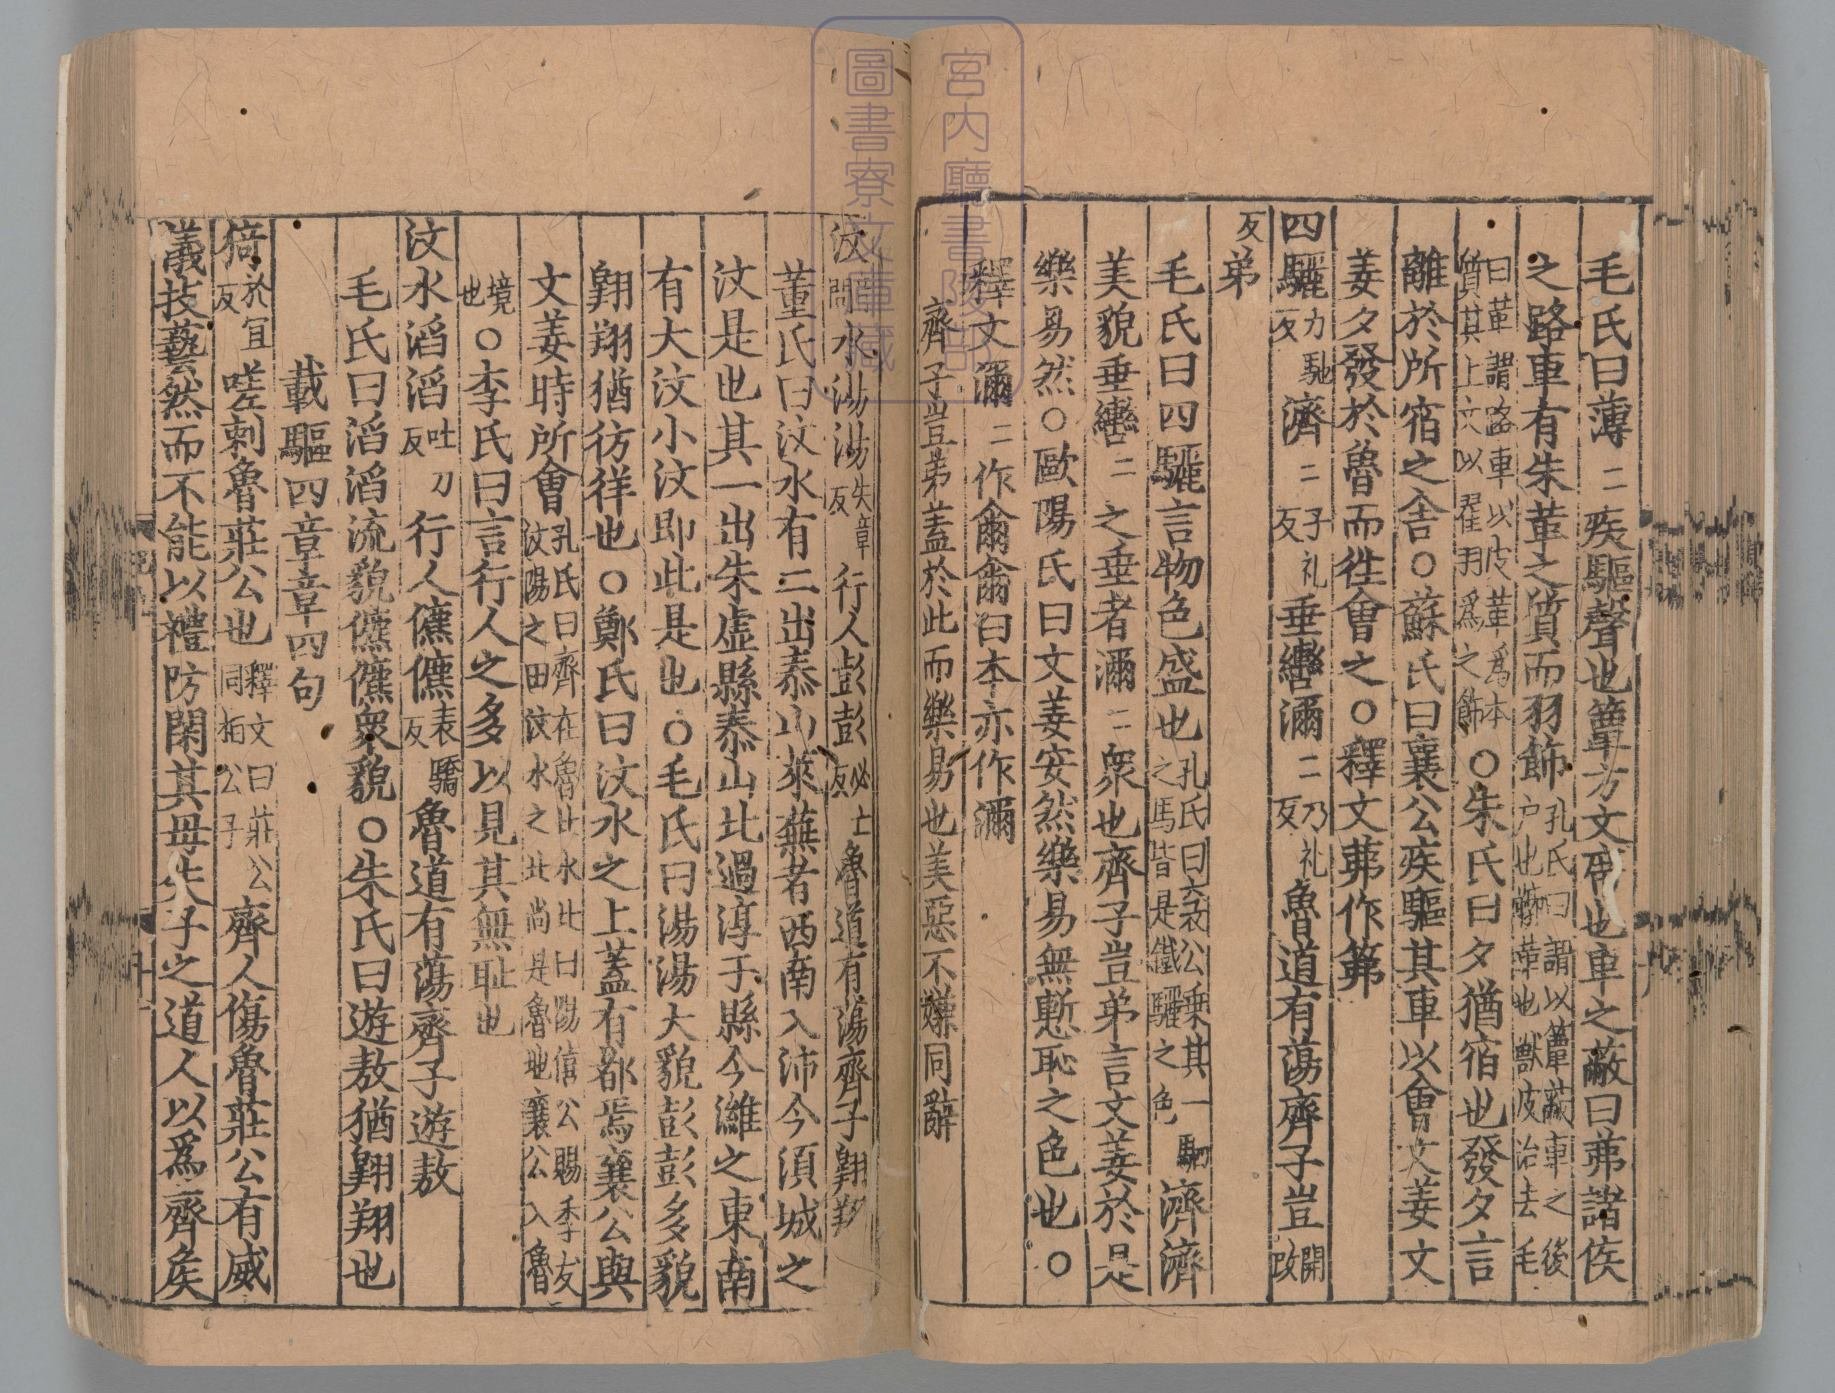 毛氏曰薄二疾驅聲也簟方文席也車之蔽曰茀諸侯
之路車有朱革之質而羽飾孔氏曰謂以簟蔽車之後戶也鞹革也獸皮治去毛
曰革謂路車以皮革爲本質其上又以翟羽爲之飾○朱氏曰夕猶宿也發夕言
離於所宿之舍○蘇氏曰襄公疾驅其車以會文姜文
姜夕發於魯而徃會之○釋文茀作第
四驪力馳反濟二子礼反垂轡濔二乃礼反魯道有蕩齊子豈開改
反弟
毛氏曰四驪言物色盛也孔氏曰襄公乗其一駟之馬皆是鐵驪之色濟濟
美貌垂轡二之垂者濔二衆也齊子豈弟言文姜於是
樂易然○歐陽氏曰文姜安然樂易無慙恥之色也○
釋文濔二作爾爾曰本亦作濔
齊子豈弟蓋於此而樂易也美惡不嫌同辭
汶問水湯湯失章反行人彭彭必亡反魯道有蕩齊子翺翔
董氏曰汶水有二出泰山萊蕪者西南入沛今湏城之
汶是也其一出朱虛縣泰山北過淳于縣今濰之東南
有大汶小汶即此是也○毛氏曰湯湯大貌彭彭多貌
翺翔猶彷徉也○鄭氏曰汶水之上蓋有都焉襄公與
文姜時所會孔氏曰齊在魯北水北曰陽僖公賜季友汶陽之田汶水之北尚是魯地襄公入魯
境也○李氏曰言行人之多以見其無耻也
汶水滔滔吐刀反行人儦儦表驕反魯道有蕩齊子遊敖
毛氏曰滔滔流貌儦儦衆貌○朱氏曰遊敖猶翺翔也
載驅四章章四句
猗於宜反嗟刺魯莊公也釋文曰莊公同桓公子齊人傷魯莊公有威
儀技藝然而不能以禮防閑其毋失子之道人以爲齊矦